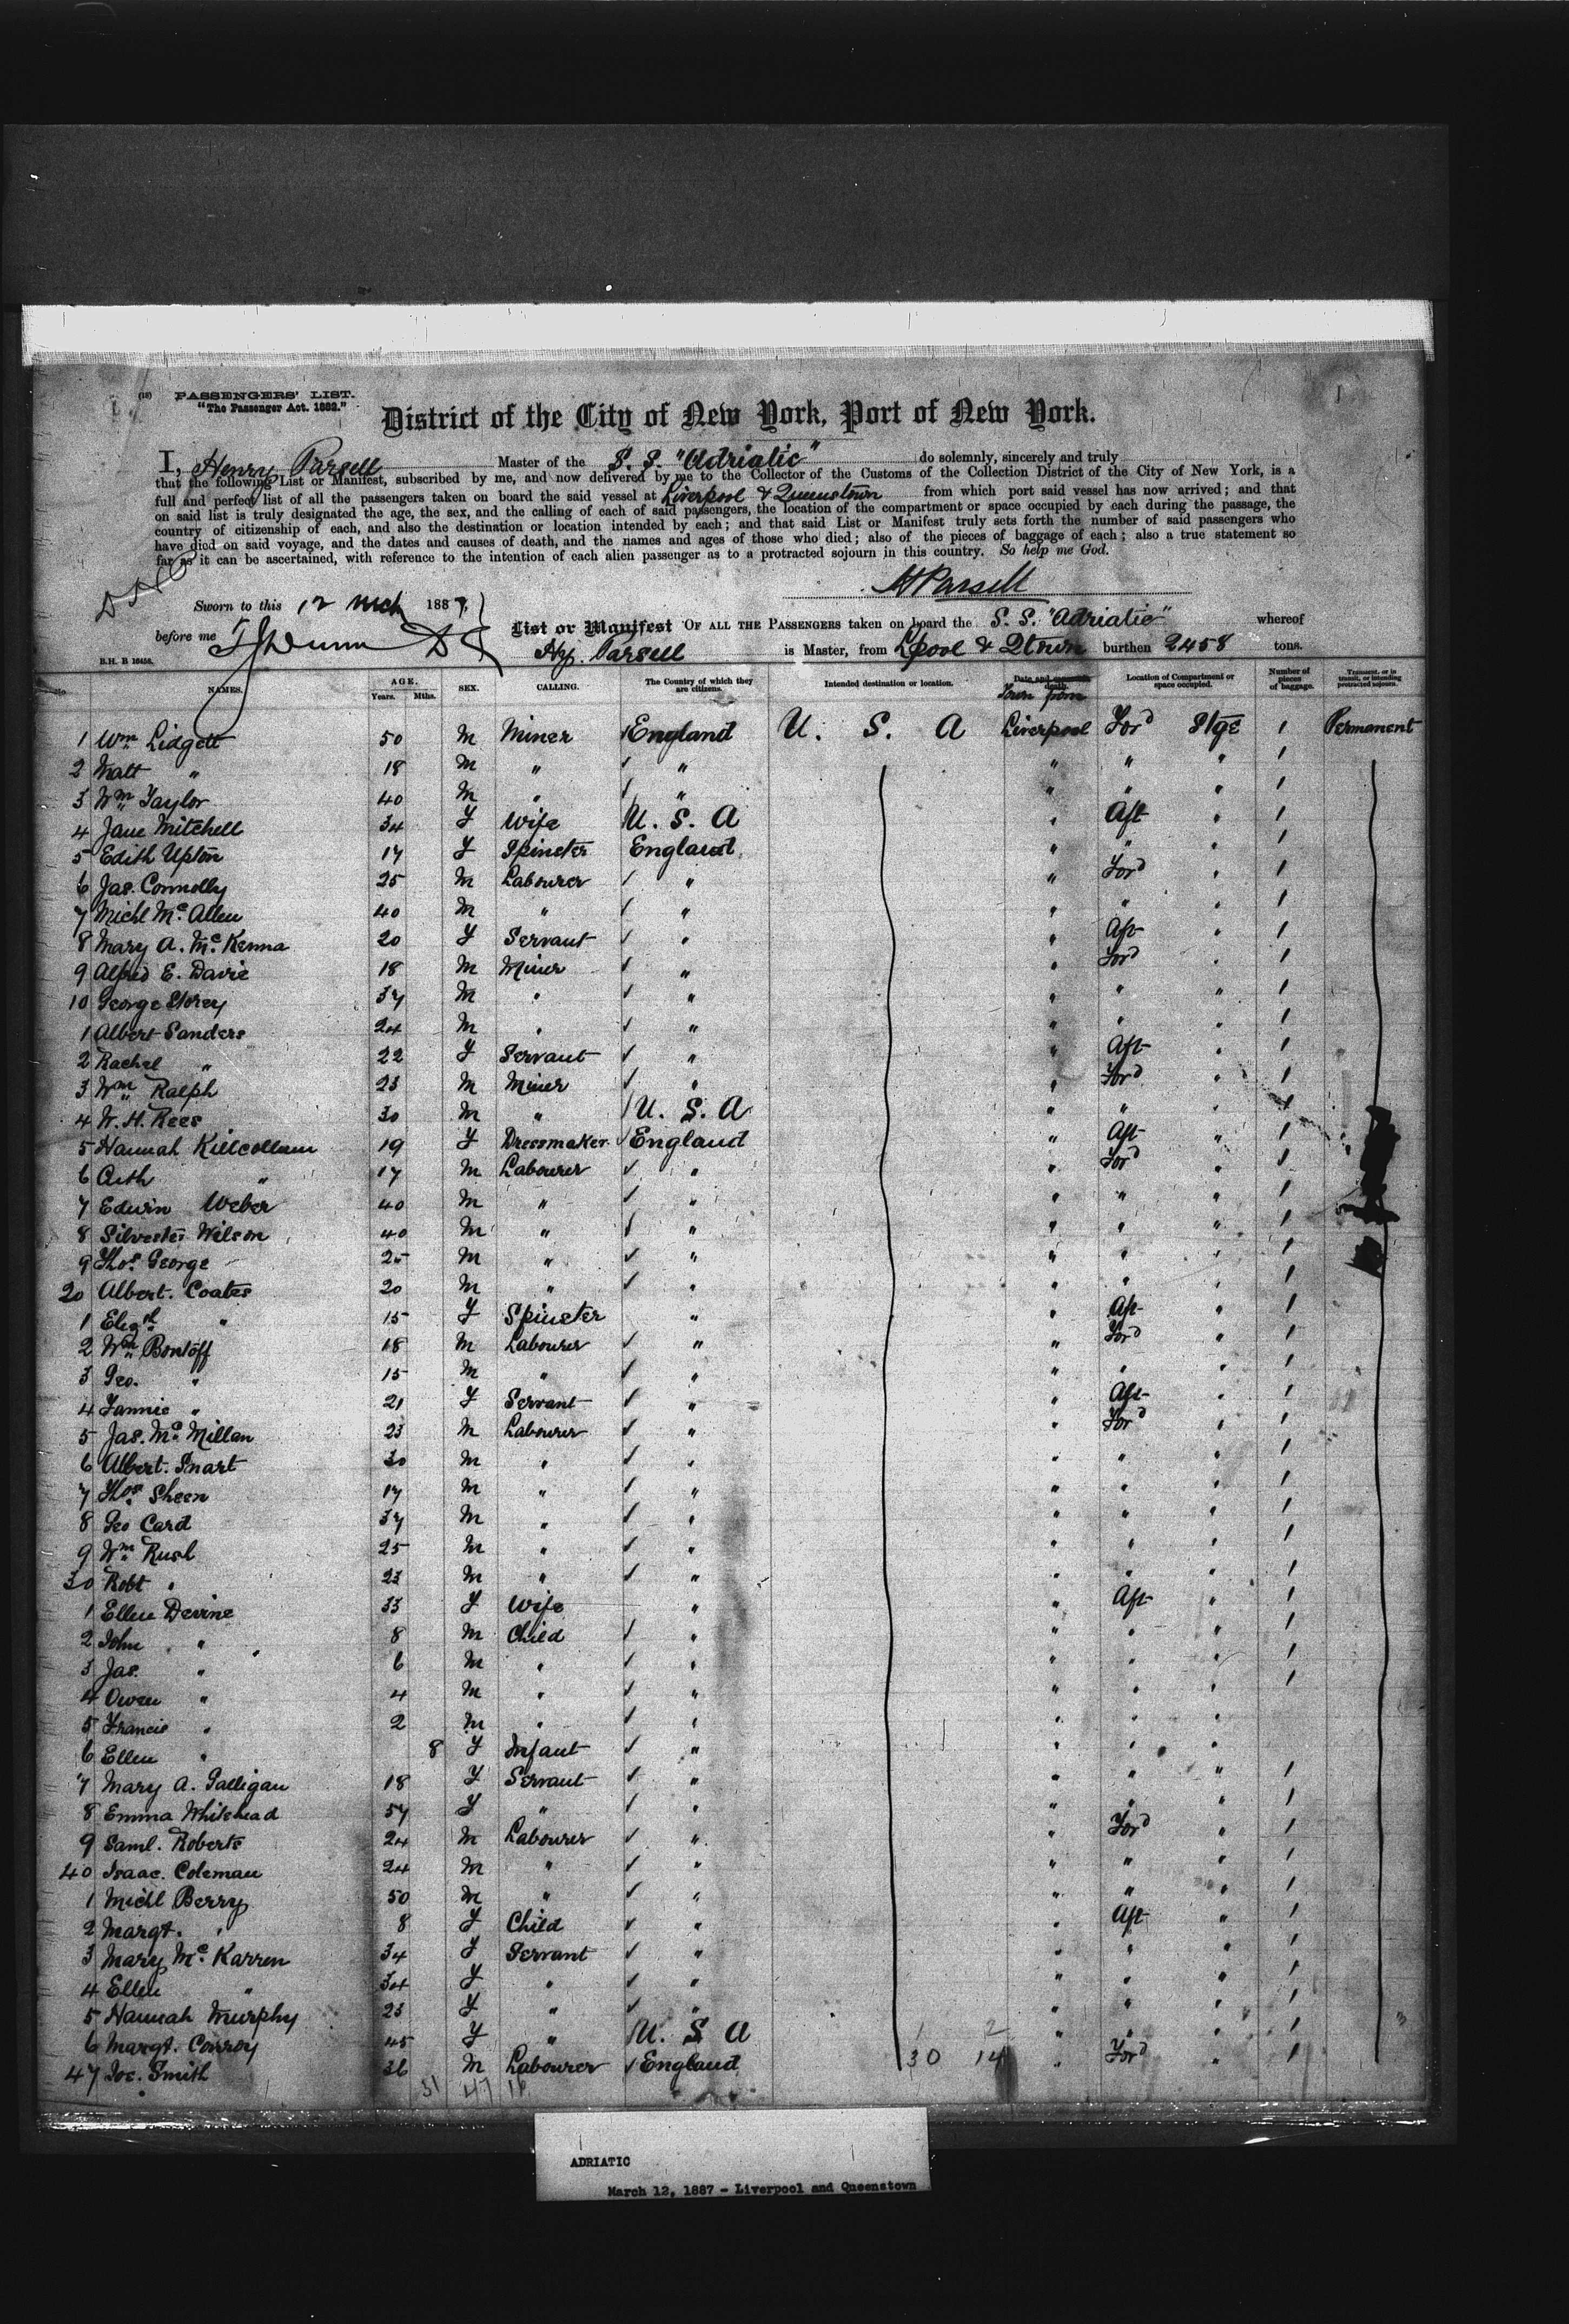 (18) PASSENGERS' LIST.
"The Passenger Act. 1882."
District of the City of New York, Port of New York.
I, Henry Parsell Master of the S. S. "Adriatic" do solemnly, sincerely and truly
that the following List or Manifest, subscribed by me, and now delivered by me to the Collector of the Customs of the Collection District of the City of New York, is a
full and perfect list of all the passengers taken on board the said vessel at Liverpool & Queenstown from which port said vessel has now arrived; and that
on said list is truly designated the age, the sex, and the calling of each of said passengers, the location of the compartment or space occupied by each during the passage, the
country of citizenship of each, and also the destination or location intended by each; and that said List or Manifest truly sets forth the number of said passengers who
have died on said voyage, and the dates and causes of death, and the names and ages of those who died; also of the pieces of baggage of each; also a true statement so
far as it can be ascertained, with reference to the intention of each alien passenger as to a protracted sojourn in this country. So help me God.
H Parsell
Sworn to this 12 Mch 1887,
before me
List or Manifest OF ALL THE PASSENGERS taken on board the S. S. "Adriatic" whereof
Hy. Parsell is Master, from Lpool & Qtown burthen 2458 tons.
B.H. B 16456.
No. NAMES. AGE. Years. Mths. SEX. CALLING. The Country of which they are citizens. Intended destination or location. Date and cause of death. Town from Location of Compartment or space occupied. Number of pieces of baggage. Transient, or in transit, or intending protracted sojourn.
1 Wm Lidgett 50 M Miner England U. S. A Liverpool Ford Stge 1 Permanent
2 Matt " 18 M " " " " " 1
3 Wm Taylor 40 M " " " " " 1
4 Jane Mitchell 34 F Wife U. S. A " Aft " 1
5 Edith Upton 17 F Spinster England " " " 1
6 Jas. Connolly 25 M Labourer " " Ford " 1
7 Michl McAllen 40 M " " " " " 1
8 Mary A. McKenna 20 F Servant " " Aft " 1
9 Alfred E. Davie 18 M Miner " " Ford " 1
10 George Storey 37 M " " " " " 1
1 Albert Sanders 24 M " " " " " 1
2 Rachel " 22 F Servant " " Aft " 1
3 Wm Ralph 23 M Miner " " Ford " 1
4 W. H. Rees 30 M " U. S. A " " " 1
5 Hannah Killcollum 19 F Dressmaker England " Aft " 1
6 Arth " 17 M Labourer " " Ford " 1
7 Edwin Weber 40 M " " " " " 1
8 Silvester Wilson 40 M " " " " " 1
9 Thos. George 25 M " " " " " 1
20 Albert. Coates 20 M " " " " " 1
1 Elizth " 15 F Spinster " " Aft " 1
2 Wm Bontoff 18 M Labourer " " Ford " 1
3 Geo. " 15 M " " " " " 1
4 Fannie " 21 F Servant " " Aft " 1
5 Jas. McMillan 23 M Labourer " " Ford " 1
6 Albert. Snart 30 M " " " " " 1
7 Thos Sheen 17 M " " " " " 1
8 Geo Card 37 M " " " " " 1
9 Wm Rusl 25 M " " " " " 1
30 Robt " 23 M " " " " " 1
1 Ellen Devine 33 F Wife " " Aft " 1
2 John " 8 M Child " " " " 1
3 Jas. " 6 M " " " " " 1
4 Owen " 4 M " " " " " 1
5 Francis " 2 M " " " " "
6 Ellen " 8 F Infant " " " "
7 Mary A. Galligan 18 F Servant " " " " 1
8 Emma Whitehead 57 F " " " " " 1
9 Saml. Roberts 24 M Labourer " " Ford " 1
40 Isaac. Coleman 24 M " " " " " 1
1 Michl Berry 50 M " " " " " 1
2 Margt. " 8 F Child " " Aft " 1
3 Mary McKarren 34 F Servant " " " " 1
4 Ellen " 34 F " " " " " 1
5 Hannah Murphy 23 F " " " " " 1
6 Margt. Conroy 45 F " U. S A " " " 1
47 Jos. Smith 36 M Labourer England " Ford " 1
1 2
30 14
31 47 16
ADRIATIC
March 12, 1887 - Liverpool and Queenstown